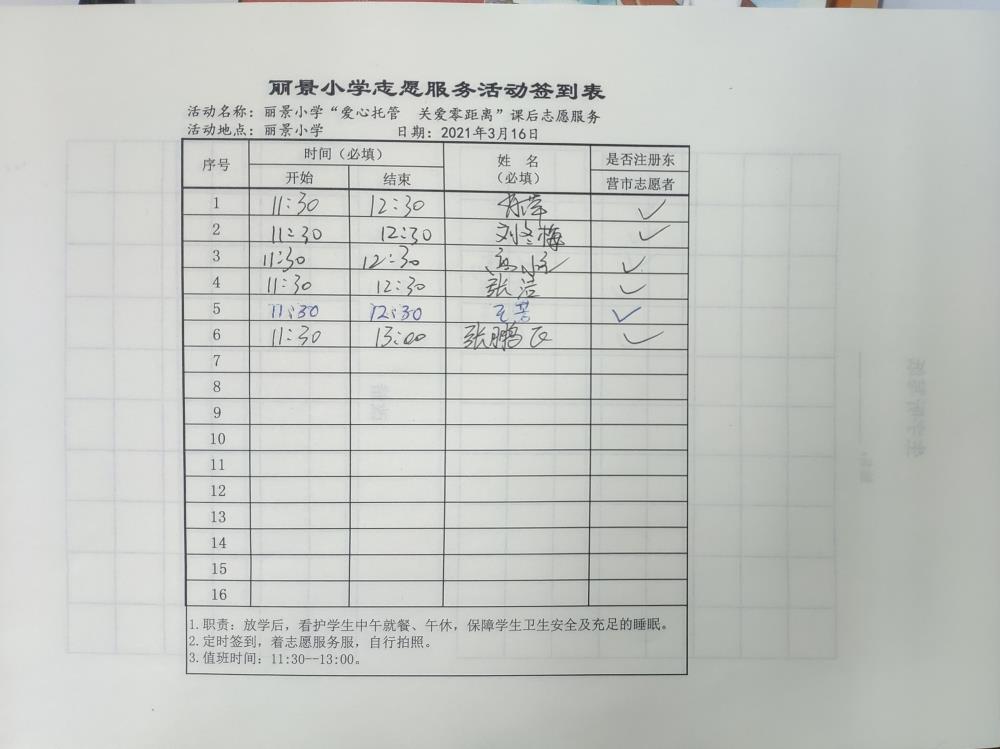 丽景小学志愿服务活动签到表
活动名称：丽景小学“爱心托管 关爱零距离”课后志愿服务
活动地点：丽景小学 日期：2021年3月16日
序号 时间（必填） 姓 名 （必填） 是否注册东营市志愿者
开始 结束
1 11:30 12:30 ✓
2 11:30 12:30 刘冬梅 ✓
3 11:30 12:30 ✓
4 11:30 12:30 张洁 ✓
5 11:30 12:30 ✓
6 11:30 13:00 张鹏飞 ✓
7
8
9
10
11
12
13
14
15
16
1.职责：放学后，看护学生中午就餐、午休，保障学生卫生安全及充足的睡眠。
2.定时签到，着志愿服务服，自行拍照。
3.值班时间：11:30--13:00。